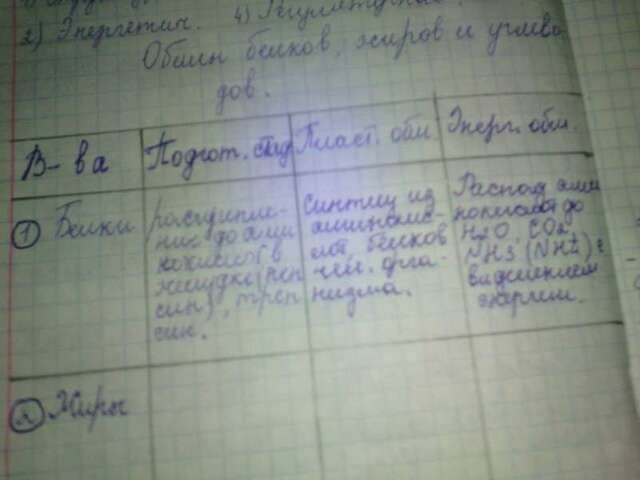 2) Энергетич. 4) Регулятурная
Обмен белков, жиров и углево
дов.
В-ва
Подгот. стад
Пласт. обм
Энерг. обм.
1 Белки
расщипле-
ние до ами
нокислот в
желудке (пеп
син), трип
син.
Синтиз из
аминокис-
лот, белков
чел. орга-
низма.
Распад ами
нокислот до
H2O, CO2,
NH3 (NH2) с
выделением
энергии.
2 Жиры